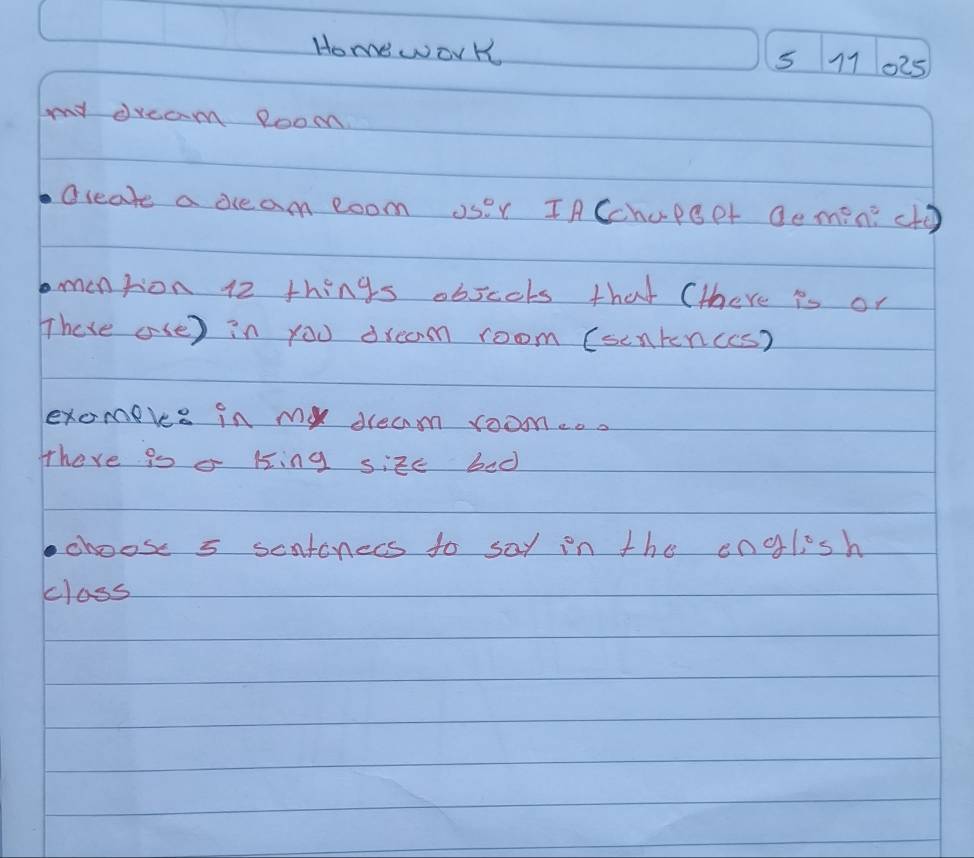 Homework 5 11 025
my dream Room.
• Create a dream Room usir IA (chapGpt Gemini ctc)
• mention 12 things objects that (there is or
There are) in you dream room (sentences)
example: in my dream room...
there is a King size bed
• choose 5 sentences to say in the english
class